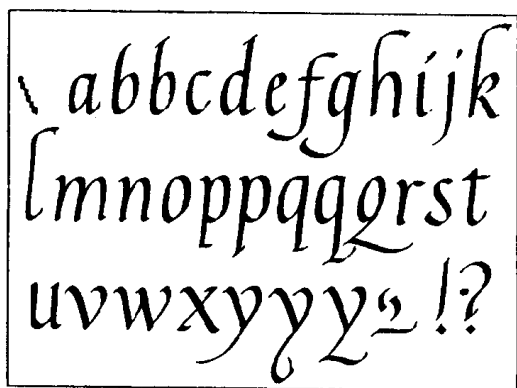 abbcdefghijk
lmnoppqqqrst
uvwxyyyz!?